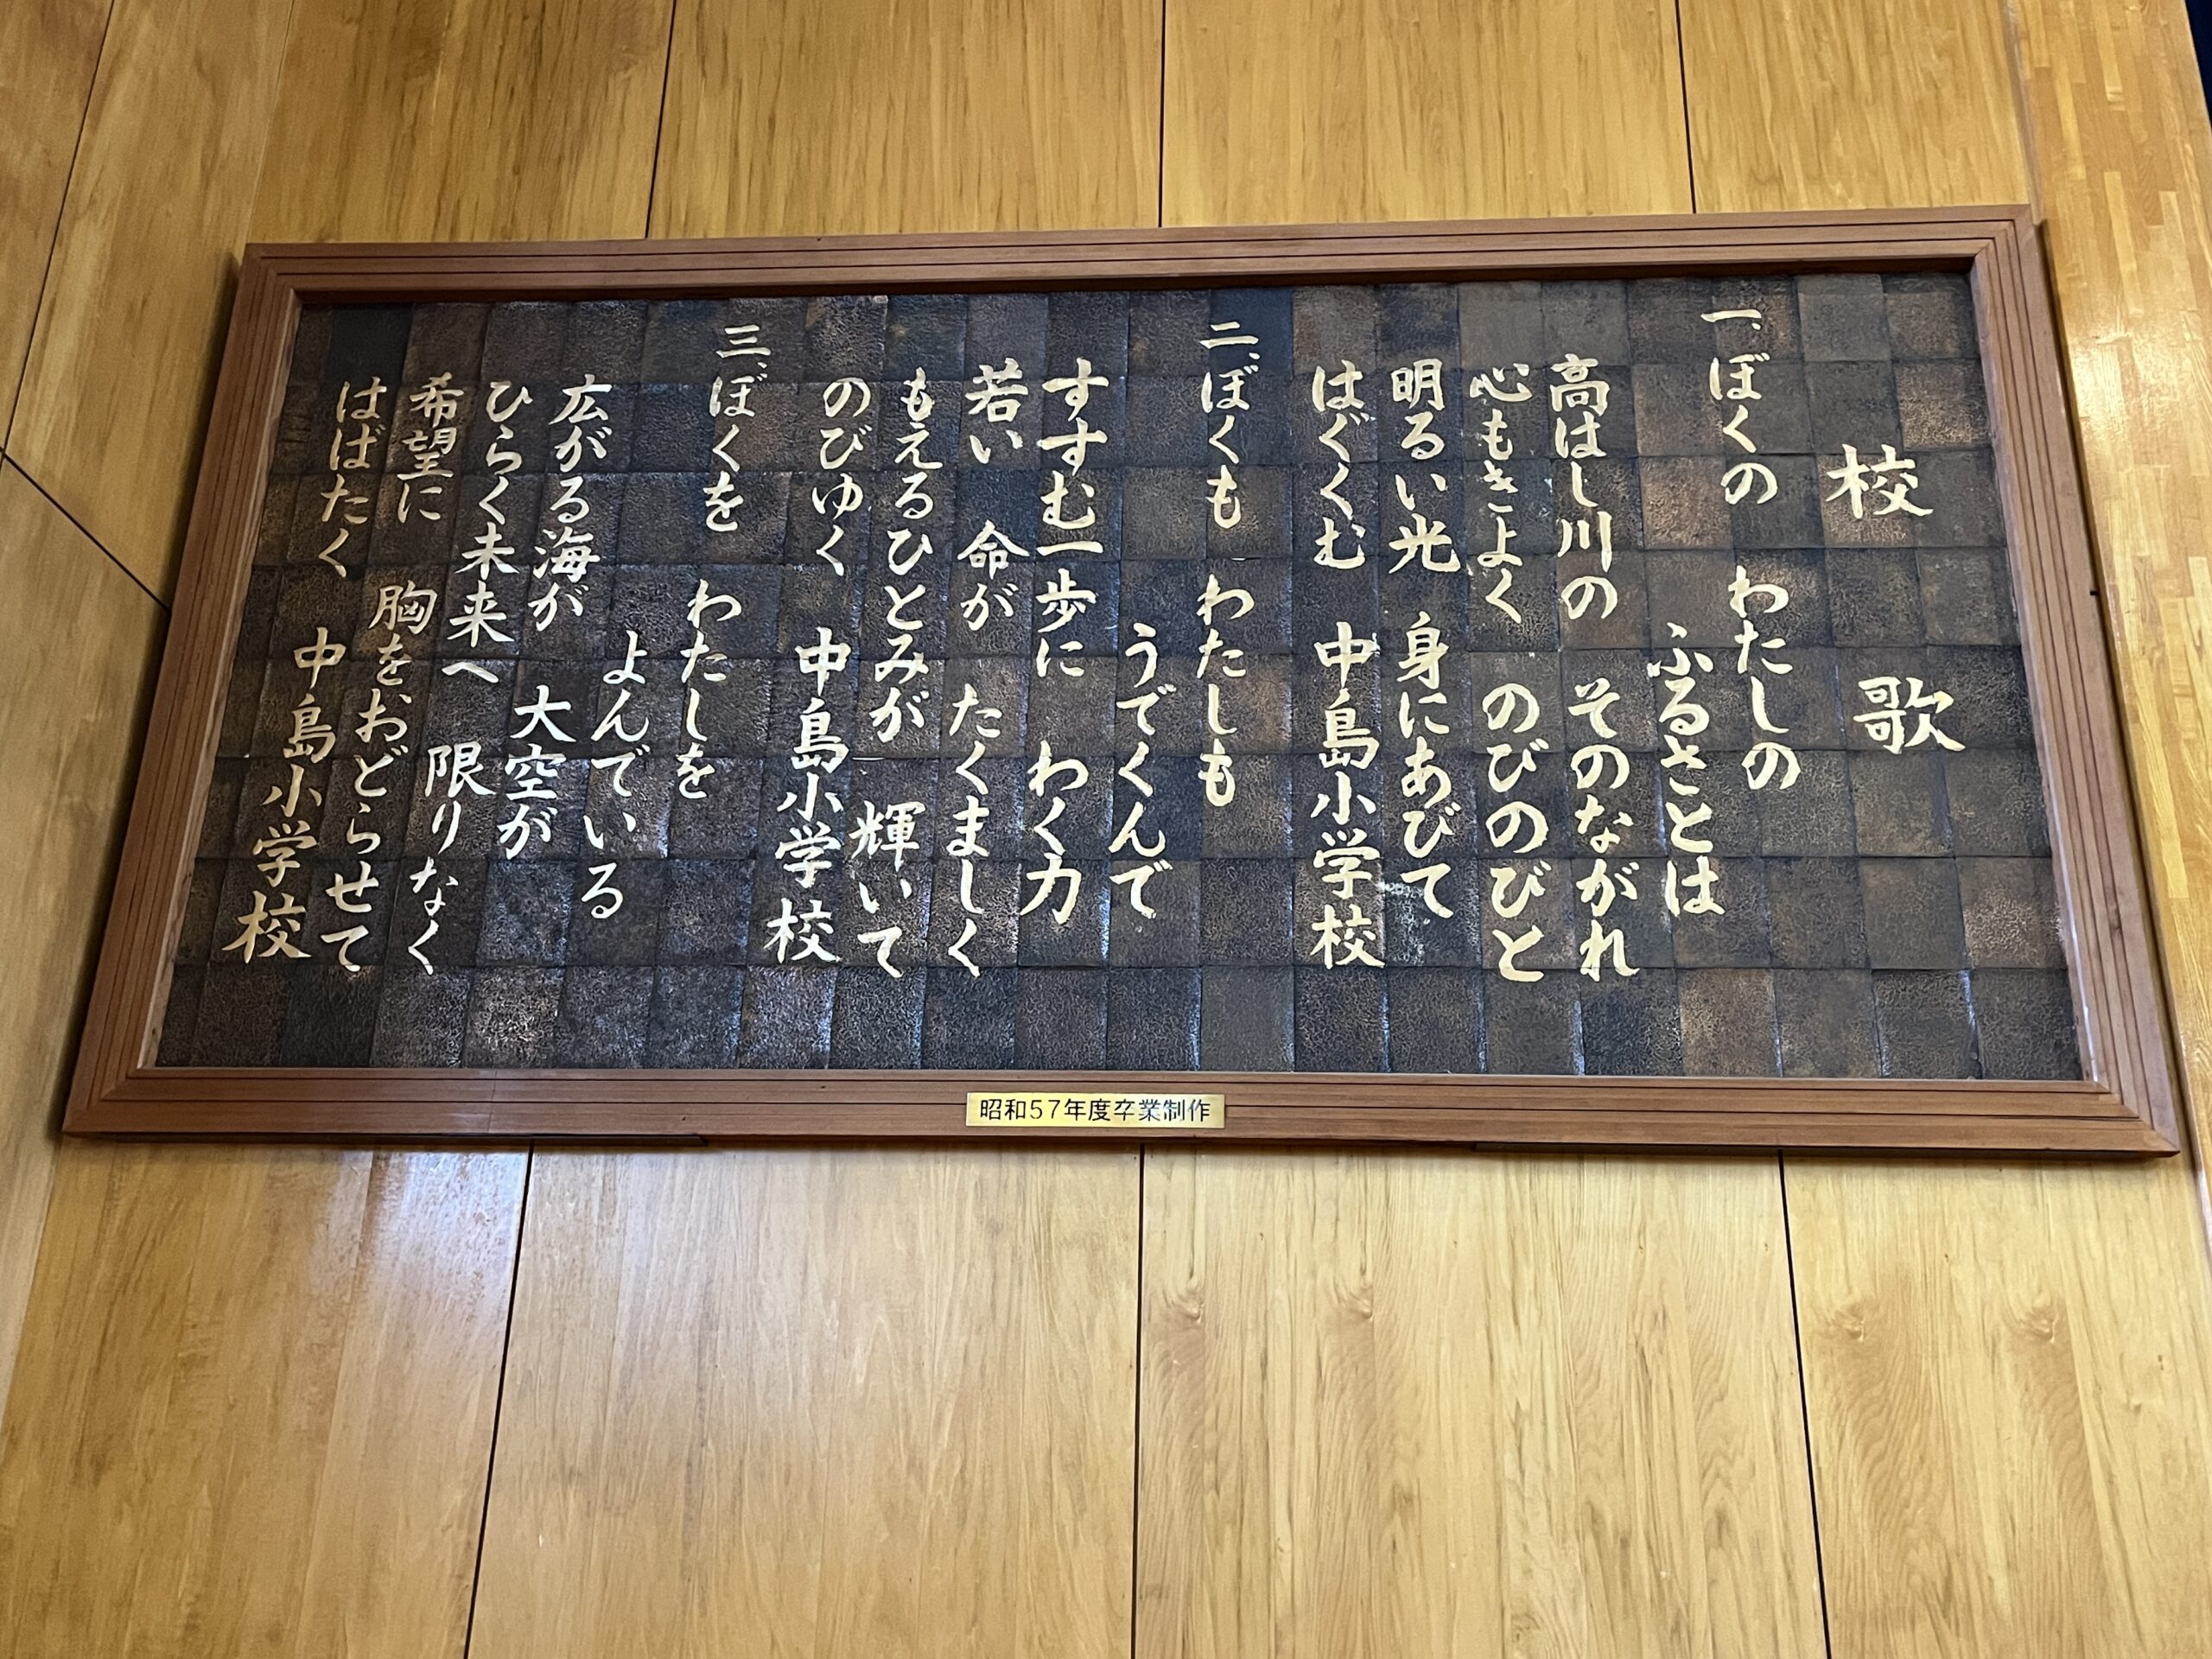 校　歌
一、ぼくの　わたしの
ふるさとは
高はし川の　そのながれ
心もきよく　のびのびと
明るい光　身にあびて
はぐくむ　中島小学校
二、ぼくも　わたしも
うでくんで
すすむ一歩に　わく力
若い　命が　たくましく
もえるひとみが　輝いて
のびゆく　中島小学校
三、ぼくを　わたしを
よんでいる
広がる海が　大空が
ひらく未来へ　限りなく
希望に　胸をおどらせて
はばたく　中島小学校
昭和57年度卒業制作